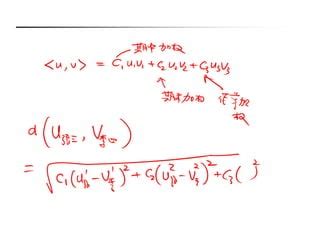 期中加权
<u, v> = C₁u₁v₁ + C₂u₂v₂ + C₃u₃v₃
期末加权
加
权
d(U张三, V李四)
= √C₁(U¹张 - V¹李)² + C₂(U²张 - V²李)² + C₃( )²